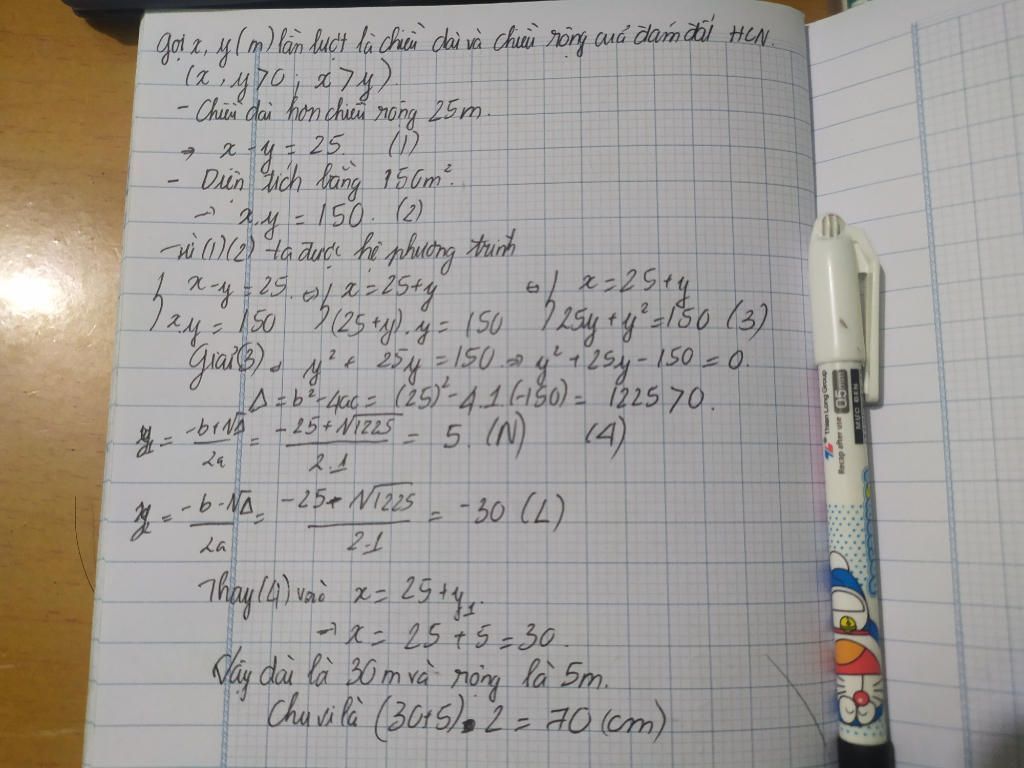 Gọi x, y (m) lần lượt là chiều dài và chiều rộng cuả đám đất HCN.
(x, y > 0 ; x > y)
- Chiều dài hơn chiều rộng 25m.
→ x - y = 25 (1)
- Diện tích bằng 150m².
→ x.y = 150. (2)
Từ (1)(2) ta được hệ phương trình
{ x - y = 25. ⇔ { x = 25 + y ⇔ { x = 25 + y
{ x.y = 150 { (25+y).y = 150 { 25y + y² = 150 (3)
Giải (3). y² + 25y = 150 → y² + 25y - 150 = 0.
Δ = b² - 4ac = (25)² - 4.1(-150) = 1225 > 0.
y₁ = (-b+√Δ)/2a = (-25+√1225)/2.1 = 5. (N) (4)
y₂ = (-b-√Δ)/2a = (-25-√1225)/2.1 = -30 (L)
Thay (4) vào x = 25 + y₁.
→ x = 25 + 5 = 30.
Vậy dài là 30m và rộng là 5m.
Chu vi là (30+5).2 = 70 (cm)
Thien Long Group
Recap after use
0.5mm
MỰC ĐEN